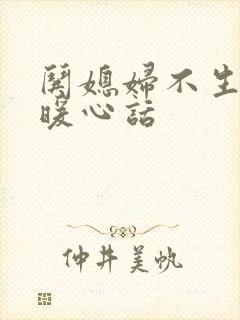 闋媳婦不生
暖心話
仲井美帆